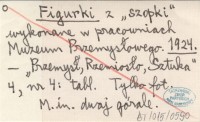 o Figurki z „szopki"
wykonane w pracowniach
Muzeum Przemysłowego. 1924.
— „Przemysł, Rzemiosło, Sztuka"
4, nr 4: tabl. Tylko fot.
M.in. dwaj górale.